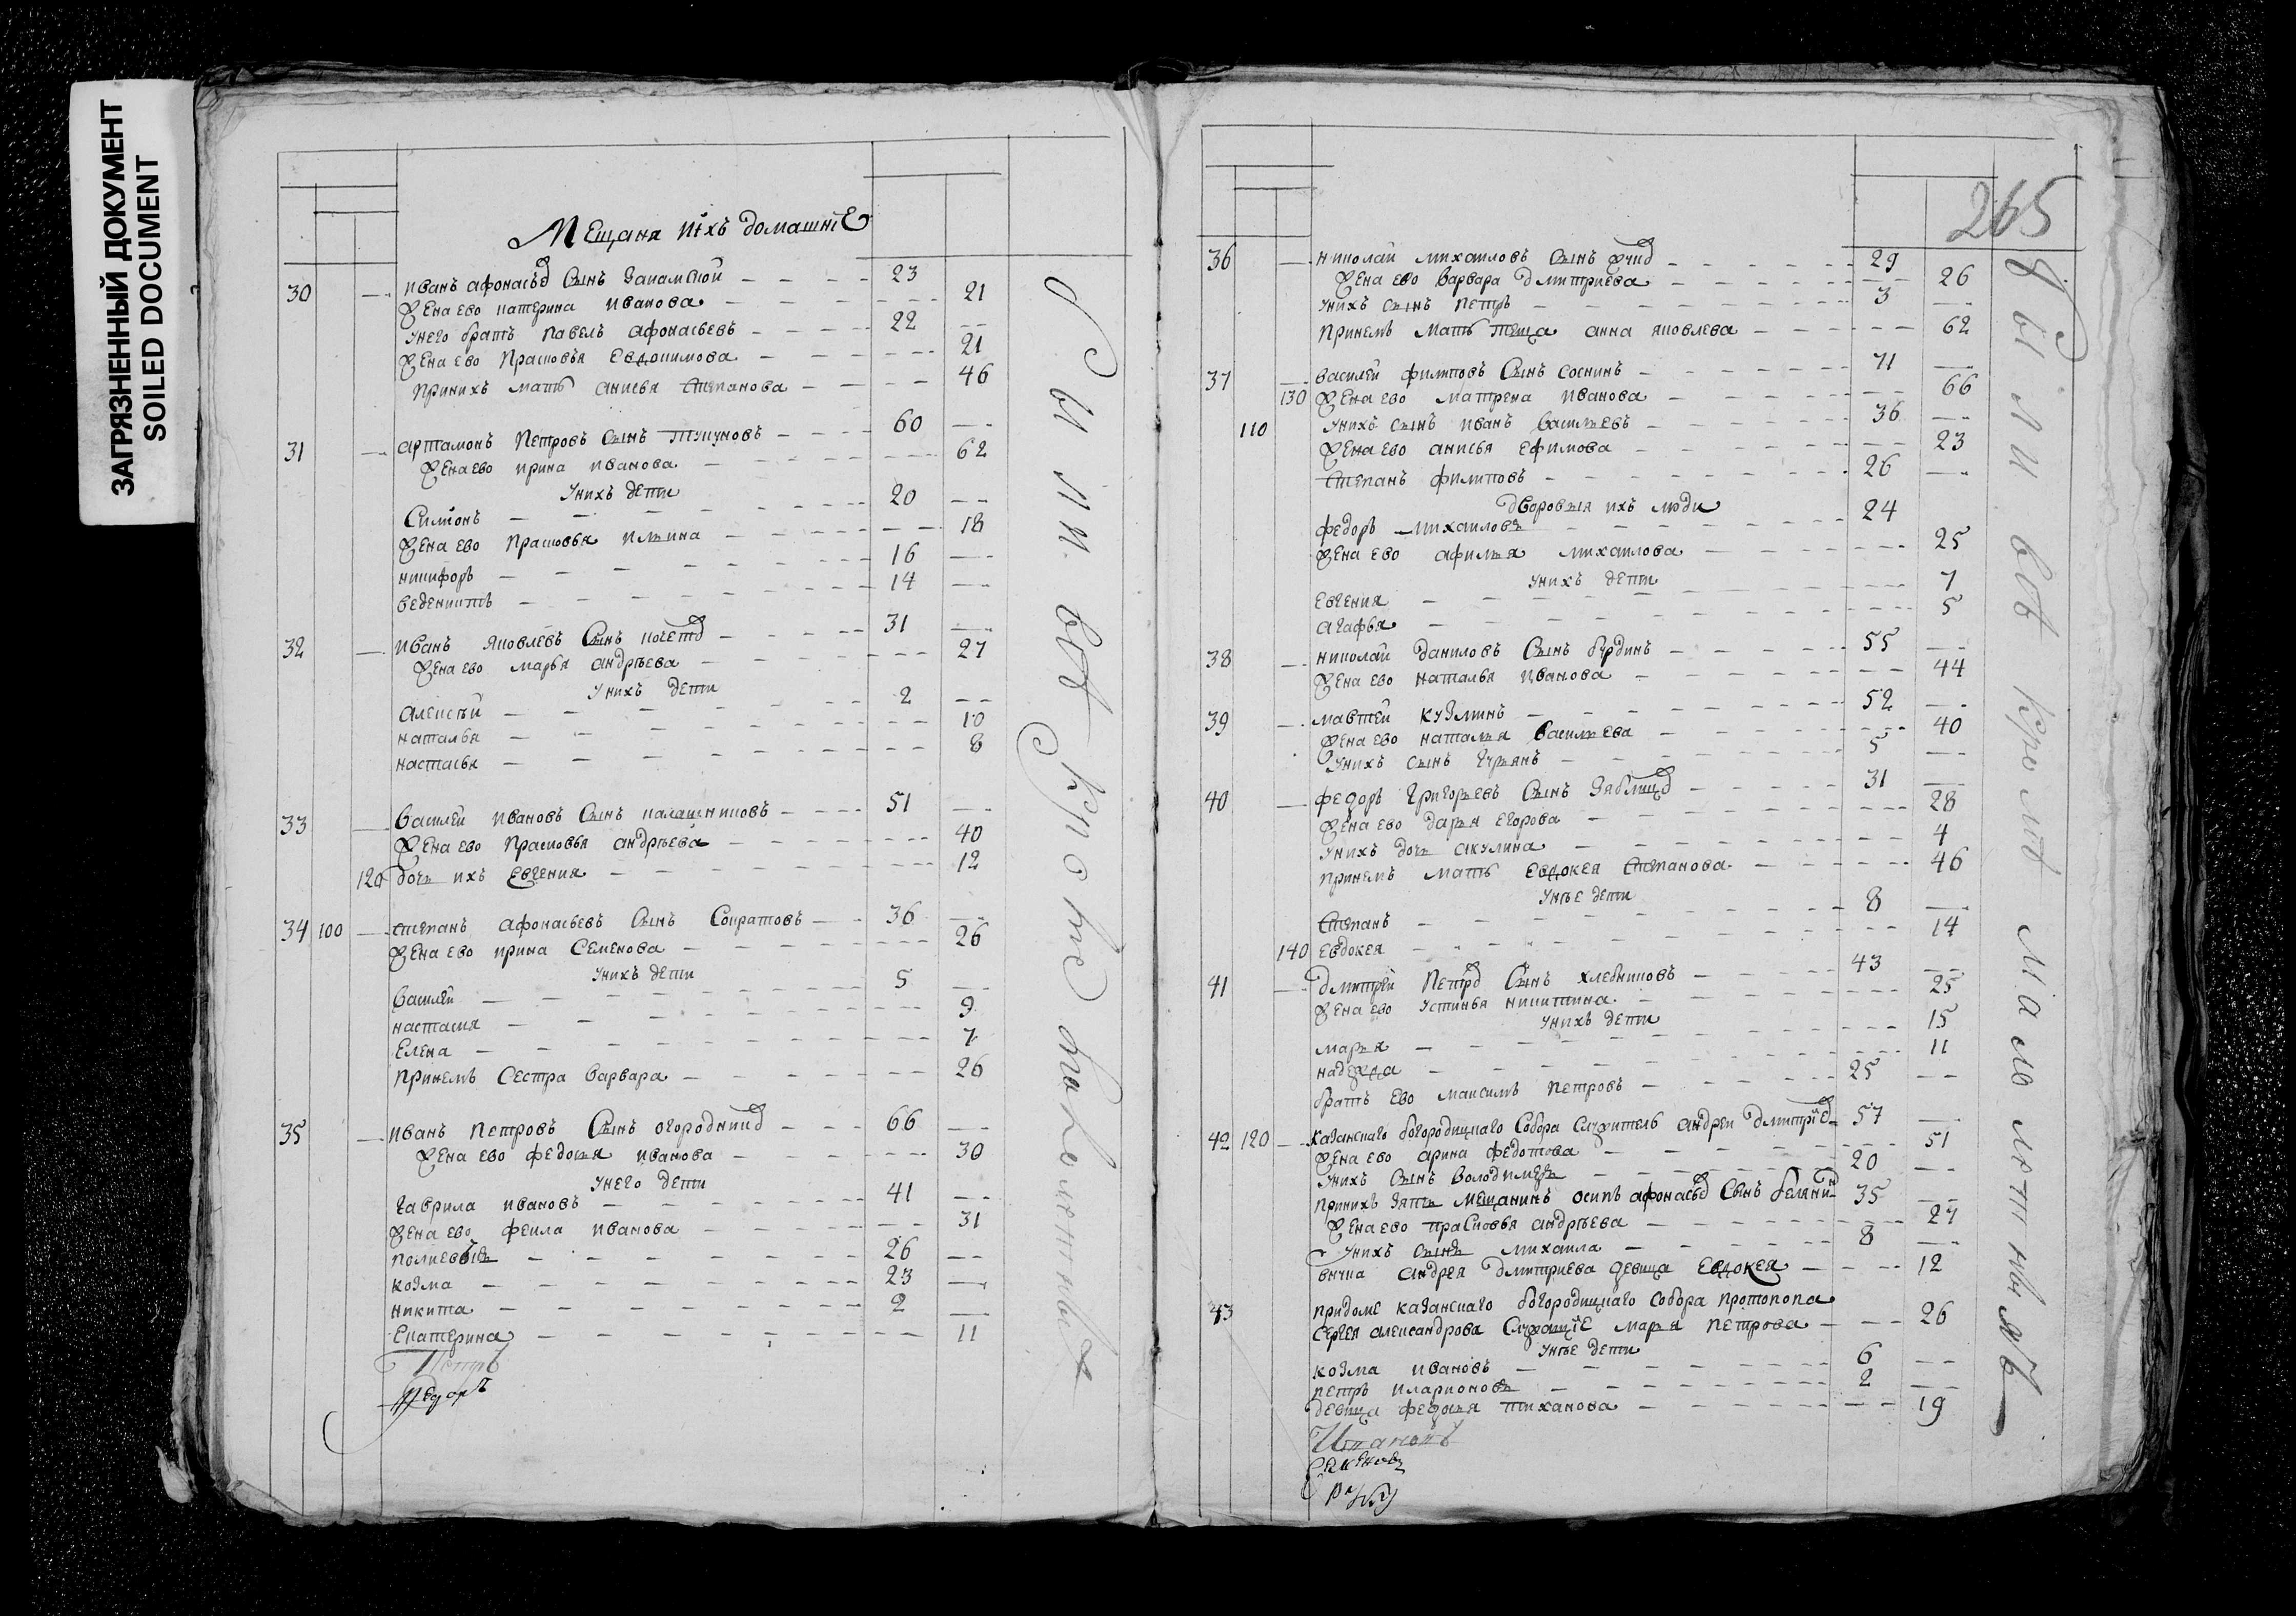 ЗАГРЯЗНЕННЫЙ ДОКУМЕНТ
SOILED DOCUMENT
Мещаня иіхъ домашніе
30 — иванъ афонасьѣ Сынъ — 23
жена ево катерина иванова — 21
унего братъ павелъ афонасьевъ — 22
жена ево прасковья Евдокимова — 21
принихъ мать анисья степанова — 46
31 — артамонъ петровъ Сынъ — 60
жена ево ирина иванова — 62
унихъ дети
Симіонъ — 20
жена ево прасковья ильина — 18
никифоръ — 16
веденихтъ — 14
32 — иванъ яковлевъ Сынъ — 31
жена ево марья андрѣева — 27
унихъ дети
алексѣй — 2
наталья — 10
настасья — 8
33 — василей ивановъ Сынъ калашниковъ — 51
жена ево прасковья андрѣева — 40
120 дочь ихъ евгения — 12
34 100 — степанъ афонасьевъ Сынъ Сократовъ — 36
жена ево ирина Семенова — 26
унихъ дети
василей — 5
настасия — 9
Елена — 7
принемъ Сестра варвара — 26
35 — иванъ петровъ Сынъ огородникѡ — 66
жена ево федосья иванова — 30
унего дети
гаврила ивановъ — 41
жена ево фекла иванова — 31
26
козма — 23
никита — 2
Екатерина — 11
Петръ
Федоръ
были всѣ кромѣ малолѣтныхъ
265
36 — николай михаиловъ Сынъ — 29
жена ево варвара дмитриева — 26
унихъ сынъ петръ — 3
принемъ мать теща анна яковлева — 62
37 — василей филиповъ Сынъ соснинъ — 71
130 жена ево матрена иванова — 66
110 унихъ сынъ иванъ васильевъ — 36
жена ево анисья ефимова — 23
степанъ филиповъ — 26
дворовыя ихъ люди
федоръ михаиловъ — 24
жена ево афимья михаилова — 25
унихъ дети
евгения — 7
агафья — 5
38 — николай даниловъ Сынъ бурдинъ — 55
жена ево наталья иванова — 44
39 — мавтей кузминъ — 52
жена ево наталия васильева — 40
унихъ сынъ — 5
40 — федоръ григорьевъ Сынъ — 31
жена ево дарья егорова — 28
унихъ дочь акулина — 4
принемъ мать евдокея степанова — 46
унѣе дети
степанъ — 8
140 евдокея — 14
41 — дмитрей петрѡ Сынъ хлебниковъ — 43
жена ево устинья никитина — 25
унихъ дети
марья — 15
надежда — 11
братъ ево максимъ петровъ — 25
42 120 — казанскаго богородицкаго Собора Служитель андреи дмитріе — 57
жена ево арина федотова — 51
унихъ Сынъ володимеръ — 20
принихъ зять мещанинъ осипъ афонасьѣ Сынъ — 35
жена ево прасковья андрѣева — 27
унихъ сынъ михаила — 8
внука андрея дмитриева девица евдокея — 12
43 придоме казанскаго богородицкаго собора протопопа
сергея александрова Служащіе марья петрова — 26
унѣе дети
козма ивановъ — 6
петръ иларионовъ — 2
девица федосья тиханова — 19
были всѣ кромѣ малолѣтныхъ